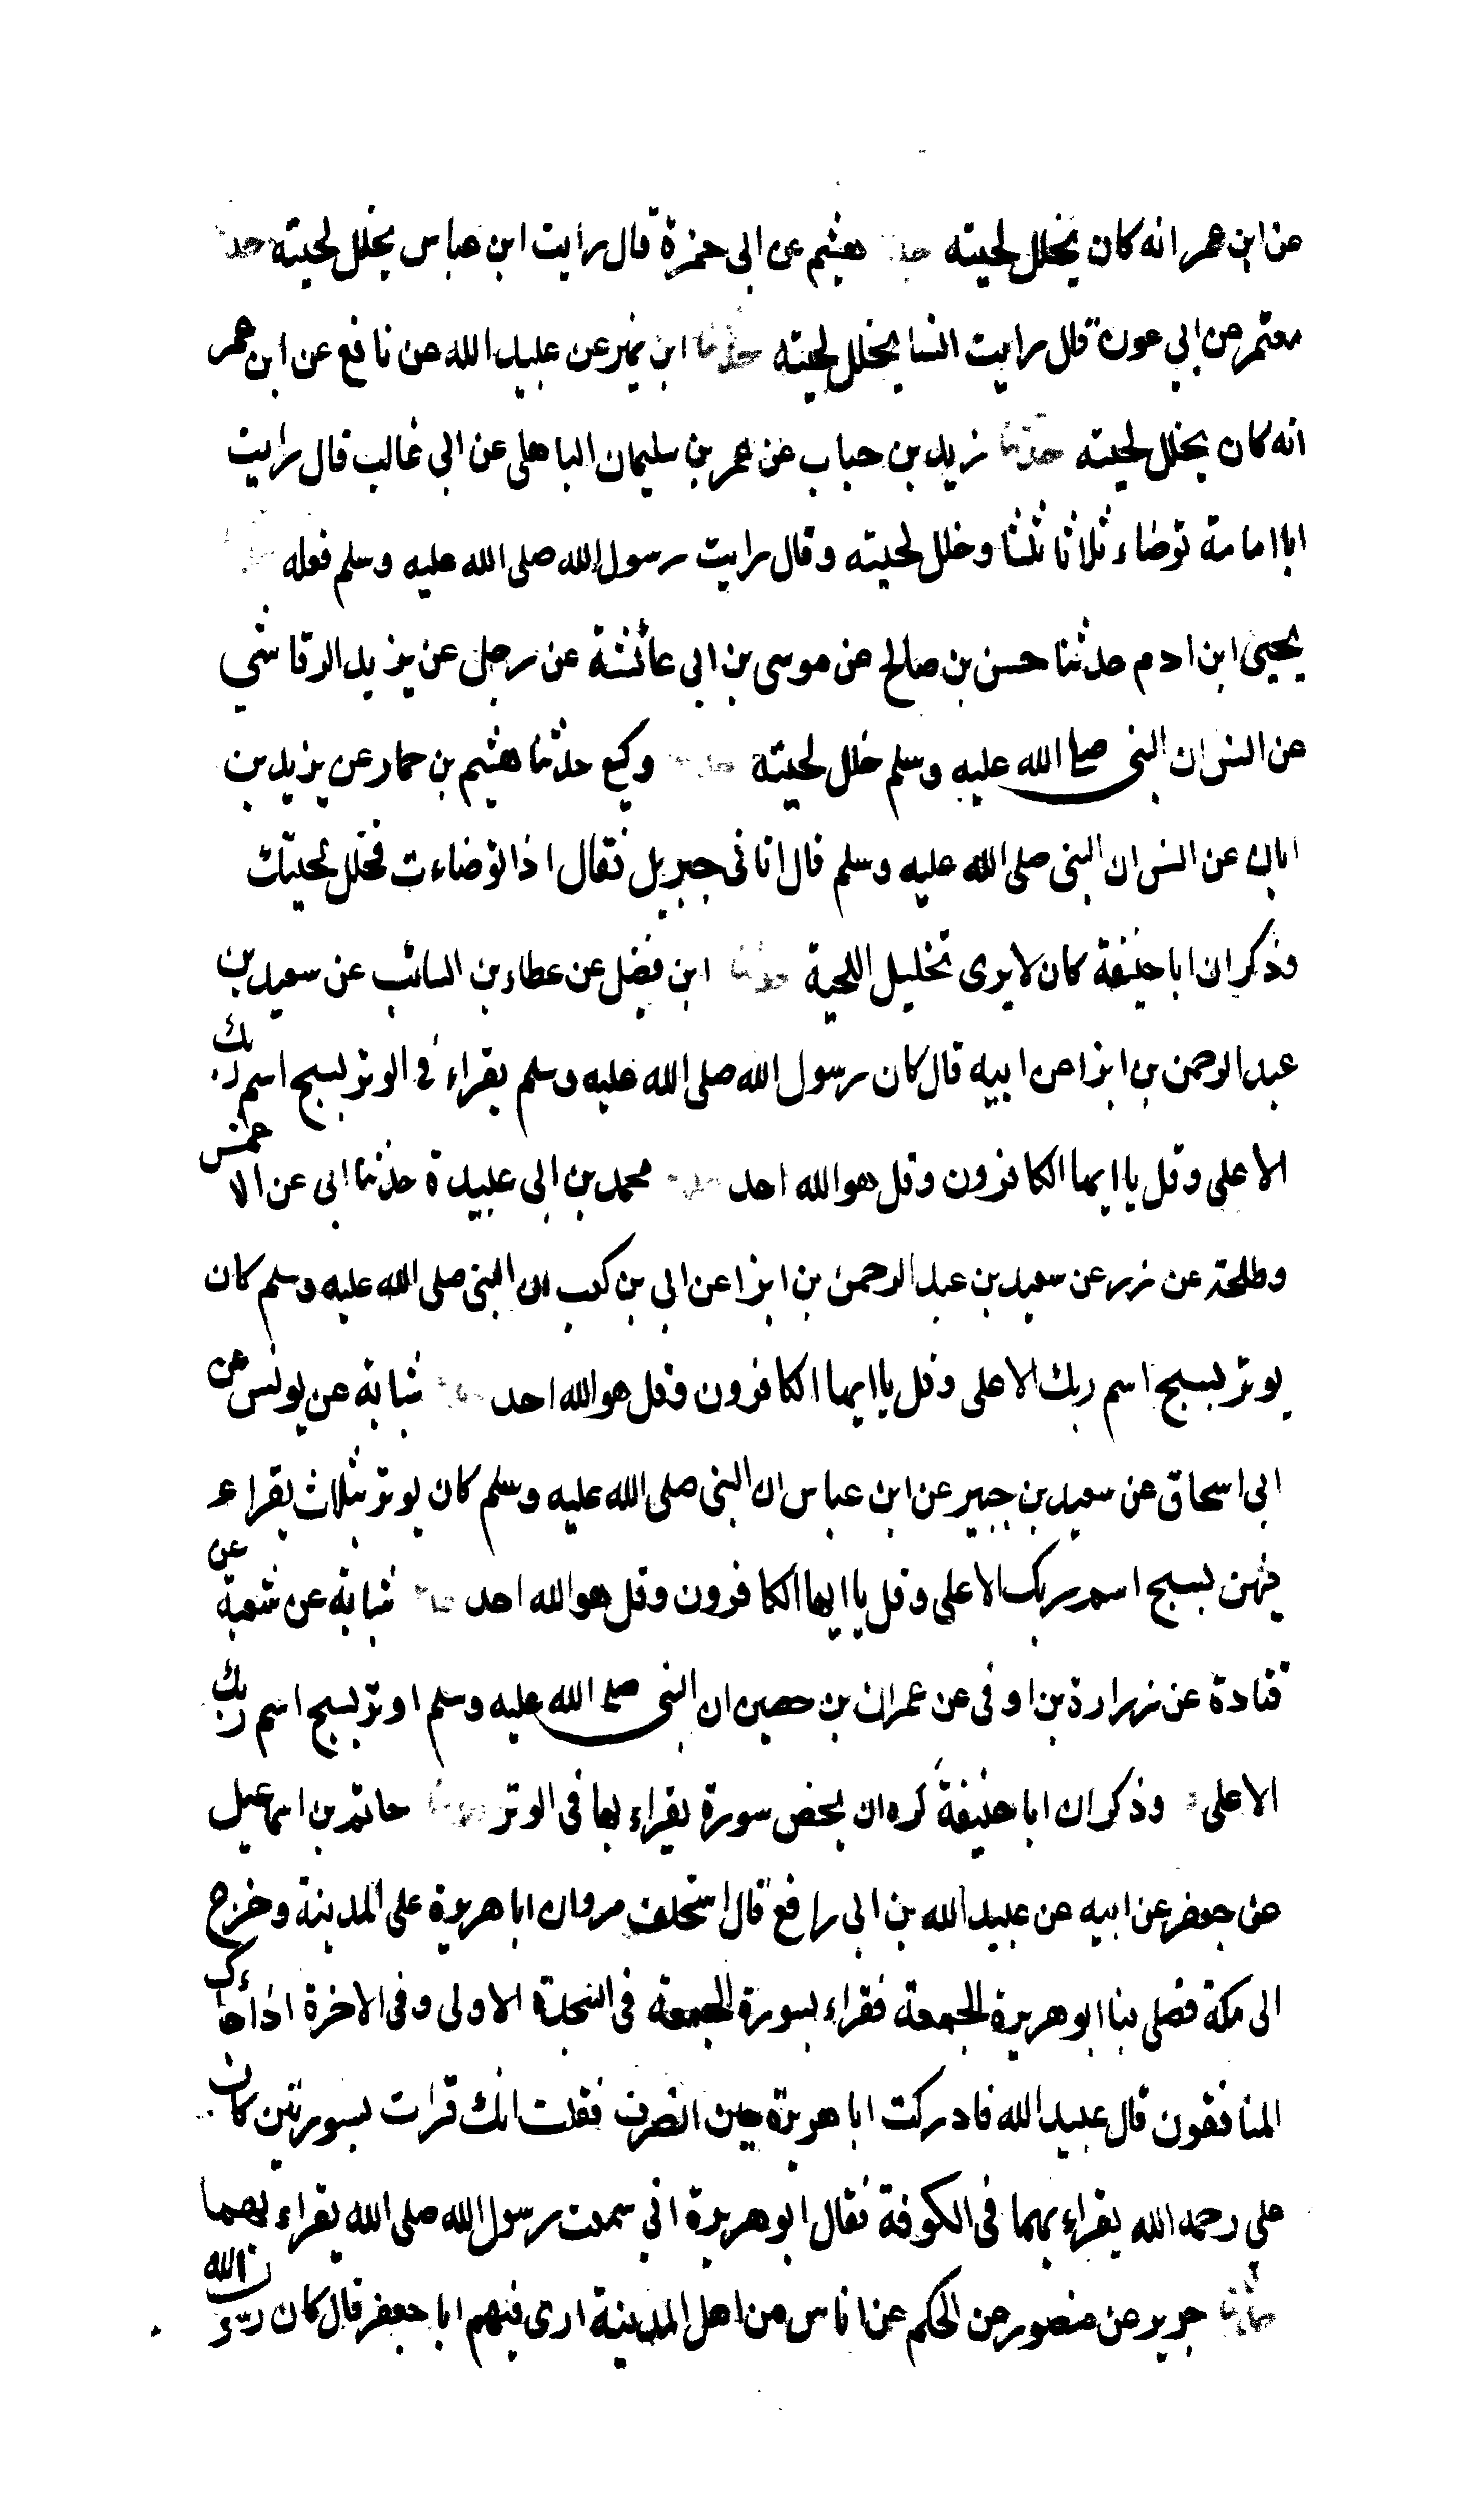 عن ابن عمر انه كان يخلل لحيته حدثنا هشيم عن ابى حمزة قال رايت ابن عباس يخلل لحيته حدثنا
معتمر عن ابي عون قال رايت انسا يخلل لحيته حدثنا ابن نمير عن عبيد الله عن نافع عن ابن عمر
انه كان يخلل لحيته حدثنا زيد بن حباب عن عمر بن سليمان الباهلى عن ابى غالب قال رايت
ابا امامة توضاء ثلاثا ثلثا وخلل لحيته وقال رايت رسول الله صلى الله عليه وسلم فعله
يحيى ابن ادم حدثنا حسن بن صالح عن موسى بن ابي عائشة عن رجل عن يزيد الرقاشي
عن انس ان النبى صلى الله عليه وسلم خلل لحيته حدثنا وكيع حدثنا هشيم بن حماد عن يزيد بن
ابان عن انس ان النبى صلى الله عليه وسلم قال اتانى جبريل فقال اذا توضاءت فخلل لحيتك
وذكر ان ابا حنيفة كان لا يرى تخليل اللحية حدثنا ابن فضيل عن عطاء بن السائب عن سعيد بن
عبد الرحمن بن ابزا عن ابيه قال كان رسول الله صلى الله عليه وسلم يقراء فى الوتر بسبح اسم ربك
الاعلى وقل يا ايها الكافرون وقل هو الله احد حدثنا محمد بن ابى عبيدة حدثنا ابى عن الاعمش
وطلحة عن زر عن سعيد بن عبد الرحمن بن ابزا عن ابي بن كعب ان النبى صلى الله عليه وسلم كان
يوتر بسبح اسم ربك الاعلى وقل يا ايها الكافرون وقل هو الله احد حدثنا شبابة عن يونس عن
ابى اسحاق عن سعيد بن جبير عن ابن عباس ان النبى صلى الله عليه وسلم كان يوتر بثلاث يقراء
فيهن بسبح اسم ربك الاعلى وقل يا ايها الكافرون وقل هو الله احد حدثنا شبابة عن شعبة عن
قتادة عن زرارة بن اوفى عن عمران بن حصين ان النبى صلى الله عليه وسلم اوتر بسبح اسم ربك
الاعلى وذكر ان ابا حنيفة كره ان يخص سورة يقراء بها فى الوتر حدثنا حاتم بن اسمعيل
عن جعفر عن ابيه عن عبيد الله بن ابى رافع قال استخلف مروان ابا هريرة على المدينة وخرج
الى مكة فصلى بنا ابو هريرة الجمعة فقراء بسورة الجمعة فى السجدة الاولى وفى الاخرة اذا جاءك
المنافقون قال عبيد الله فادركت ابا هريرة حين انصرف فقلت انك قرات بسورتين كان
على رحمه الله يقراء بهما فى الكوفة فقال ابو هريرة انى سمعت رسول الله صلى الله يقراء بهما
حدثنا جرير عن منصور عن الحكم عن اناس من اهل المدينة ارى فيهم ابا جعفر قال كان